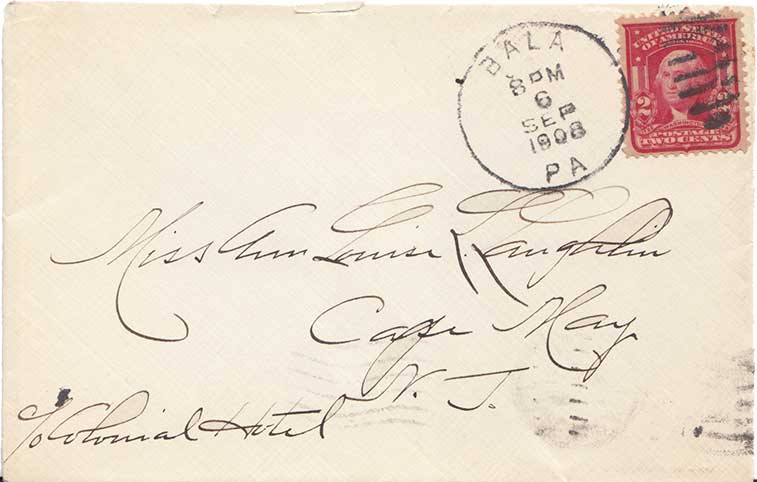 BALA
8 PM
6
SEP
1908
PA
UNITED STATES
OF AMERICA
2 2
POSTAGE
TWO CENTS
Miss Ann Louise Laughlin
Cape May
N. J.
c/o Colonial Hotel